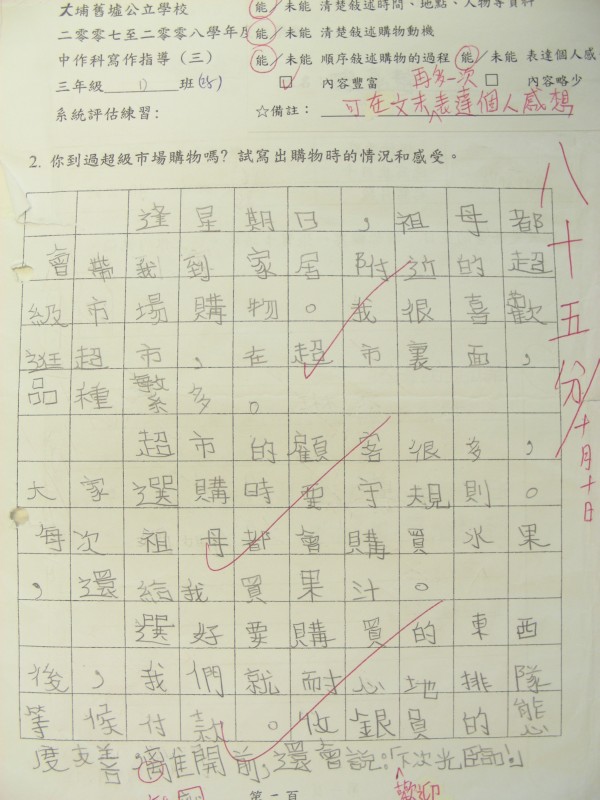 大埔舊墟公立學校
能/未能 清楚敍述時間、地點、人物等資料
二零零七至二零零八學年度
能/未能 清楚敍述購物動機
中作科寫作指導(三)
能/未能 順序敍述購物的過程 能/未能 表達個人感
三年級 D 班
內容豐富 內容略少
再多一次
系統評估練習:
☆備註: 可在文末表達個人感想
2. 你到過超級市場購物嗎?試寫出購物時的情況和感受。
八十五分
十月十日
逢星期日,祖母都
會帶我到家居附近的超
級市場購物。我很喜歡
逛超市,在超市裏面,
品種繁多。
超市的顧客很多,
大家選購時要守規則。
每次祖母都會購買水果
,還給我買果汁。
選好要購買的東西
後,我們就耐心地排隊
等候付款。收銀員的態
度友善,離開前,還會說:「下次光臨!」
歡迎
第一頁